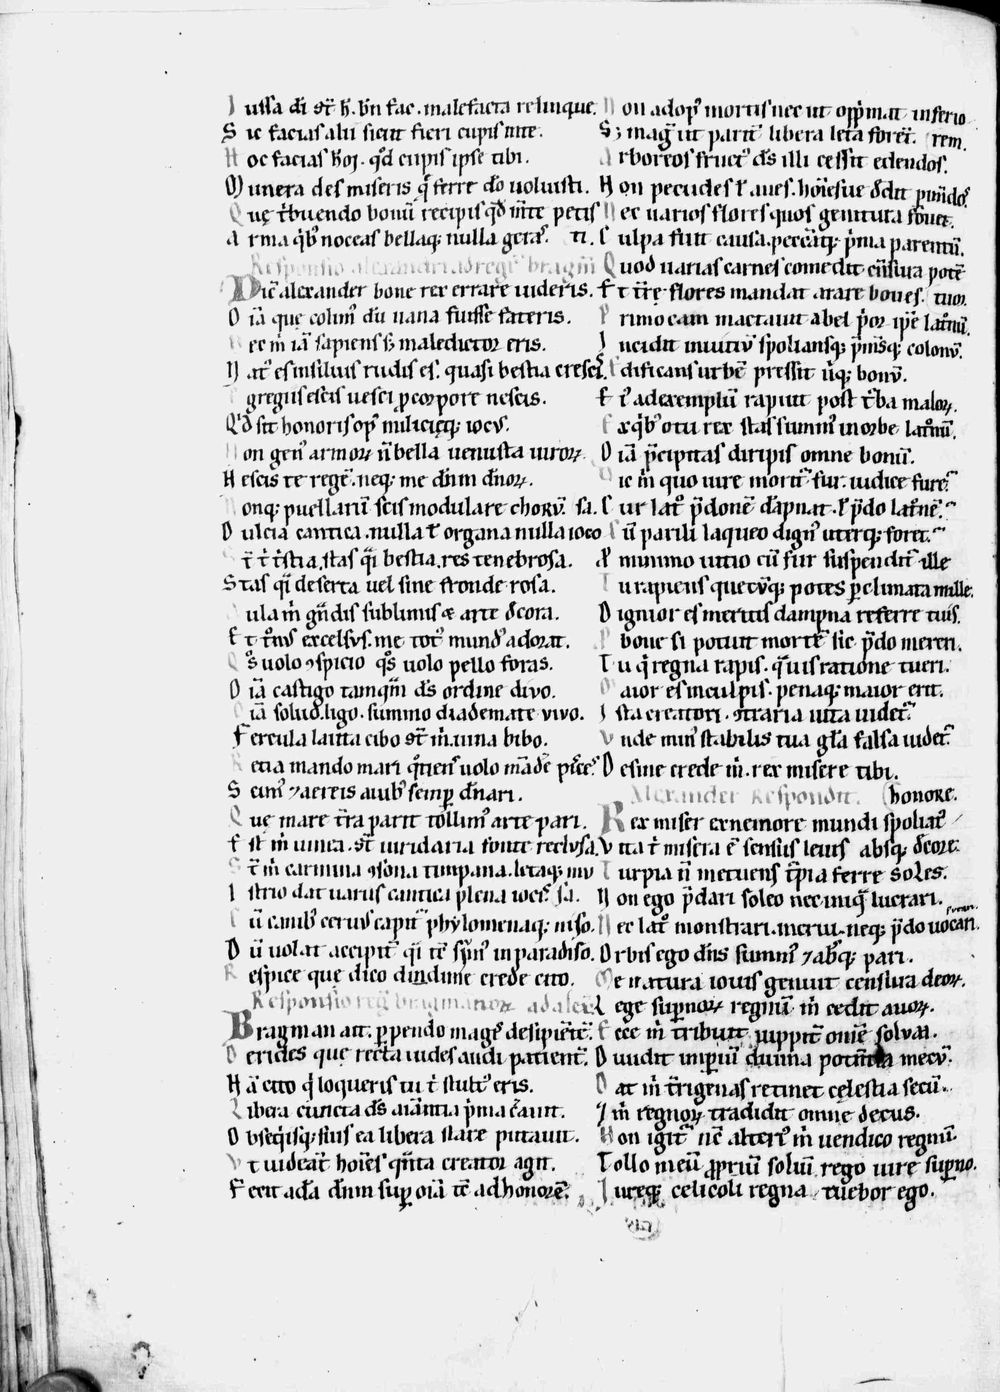 Iussa di st̄ h̄. bn̄ fac. malefacta relinque.
Sic facias alii sicut fieri cupis in te.
Hoc facias hōi. qd̓ cupis ipse tibi.
Munera des miseris q̄ ferre d̓o uoluisti.
Que t̓buendo bonū recipis qd̓ inte petis
Arma q̓b; noceas bellaq; nulla geras. ti.
Responsio alexandri ad regē bragm̄
Dic̄ alexander bone rex errare uideris.
O iā que colim̓ dū uana fuisse fateris.
Nec m̓ iā sapiens s; maledictor eris.
Nat̓ es in siluis rudis es. quasi bestia cresc̓.
Egregiis escis uesci p corpore nescis.
Qd̓ sit honoris op̓ milicieq; iocus.
Non gen̓ armoꝝ n̄ bella uenusta uiroꝝ
Nescis te regē. neq; me dn̄m dn̄oꝝ.
Nonq; puellarū scis modulare chorū. sa.
Dulcia cantica. nulla t̓ organa nulla ioco
St̄ t̓ t̓istia, stas q̓i bestia, res tenebrosa.
Stas q̓i deserta uel sine fronde rosa.
Aula m̓ gn̄dis sublimis & arte dcora.
Et t̓n̓s excelsus. me tot̓ mund̓ adorat.
Qs̓ uolo ꝯspicio qs̓ uolo pello foras.
O iā castigo tamqm̄ ds̄ ordine diuo.
O iā soluo. ligo. summo diademate uiuo.
Fercula lauta cibo st̄ m̓. uina bibo.
Retia mando mari q̓tiens uolo m̄ade pisc̓.
Seim̓ ⁊ aereis auib; semp̱ dn̄ari.
Que mare t̓ra parit tollim̓ arte pari.
Est m̓ uinea. st̄ uiridaria fonte reclusa.
St̄ m̓ carmina ꝯsona timpana. letaq; mu
Istrio dat uarius cantica plena iocis. sa.
Cū canib; ceruus capit̓ phylomenaq; niso.
Dū uolat accipit̓ q̓i tē spn̄s in paradiso.
Respice que dico dindime crede cito.
Responsio reg̓ bragmanoꝝ ad alex̄
Bragman ait. p̱pendo mage desipientē.
Derides que recta uides audi patient̓.
Hā cito q̓ loqueris tu t̓ stult̓ eris.
Libera cuncta ds̄ aīantia p̓ma c̄auit.
Obseq̓isq; suis ea libera stare putauit.
Vt uideat̓ hoīes q̓nta creator agit.
Fecit adā dn̄m sup̱ oīa tē ad honorē.
Non ad op̓ mortis nec ut opp̓mat inferio
S; mag̓ ut parit̓ libera leta foret. (rem.
Arboreos fruct̓ ds̄ illi cessit edendos.
Non pecudes t̓ aues. hoīesue ddit p̱imēdos.
Nec uarios flores quos genitura fouet.
Culpa fuit causa. peccatiq; p̓ma parentū.
Quod uarias carnes comedit cn̄siua potē
Et t̓re flores mandat arare boues. (tuor.
Primo cam mactauit abel p̓or ip̄e latnū.
Incidit inuitus spoliansq; p̓m̓sq; colonus.
Edificans urbē pressit ūq; bonus.
Et̓ ad exemplū rapuit post t̓ba maloꝝ.
Exq̓b; otu rex stas summ̓ in orbe lat̓nū.
O iā p̓cipitas diripis omne bonū.
Dic m̓ quo iure morit̓ fur. iudice fure.
Cur lat̓ p̓donē dāpnat. t̓ p̓do latnē.
Cū parili laqueo dign̓ uterq; foret.
P minimo uitio cū fur suspendit̓ ille
Tu rapiens quecūq; potes p̱ climata mille.
Dignior es meritis dampna referre tuis.
P boue si potuit mortē sic p̓do mereri.
Tu q̓ regna rapis. q̓uis ratione tueri.
Maior es in culpis. penaq; maior erit.
Ista creatori. ꝯtraria uita uidet̓.
Vnde min̓ stabilis tua gl̄a falsa uidet̓
Desine crede m̓. rex misere tibi.
Alexander Respondit. (honore.
Rex miser ex nemore mundi spoliat̓
Vita t̓ misera ē sensus leuis absq; dcore.
Turpia n̄ metuens tp̄ia ferre soles.
Non ego p̓dari soleo nec iniq̄ lucrari.
Nec lat̓ monstrari. merui. neq; p̓do uocari.
Orbis ego dn̄s summ̓ ⁊ absq; pari.
Me natura iouis genuit censura deoꝝ.
Rege sup̱noꝝ regnū m̓ cedit auoꝝ.
Ecce m̓ tribuit iuppit̓ om̄e solum.
Diuidit imp̱iū diuina potentia mecū.
Dat m̓ t̓rigenas retinet celestia secū.
Im̓ regnoꝝ tradidit omne decus.
Non igit̓ nē alteri̓ m̓ uendico regnū.
Tollo meū ꝓpriū solum rego iure sup̱no.
Iureq; celicoli regna tuebor ego.